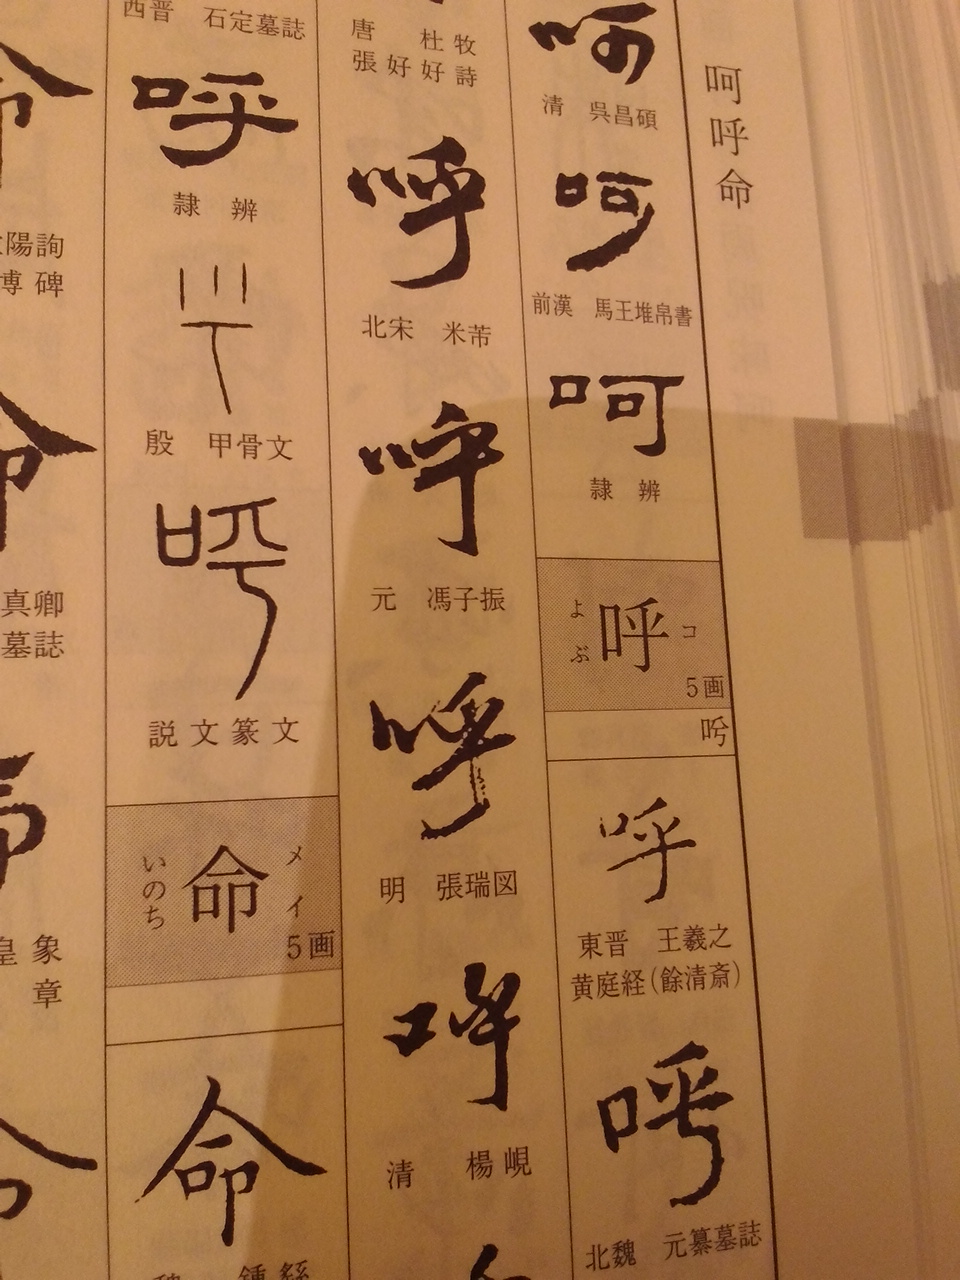 呵呼命
呵
清 呉昌碩
呵
前漢 馬王堆帛書
呵
隷辨
呼
コ
よぶ
5画
呼
東晋 王羲之
黄庭経(餘清斎)
呼
北魏 元纂墓誌
唐 杜牧
張好好詩
呼
北宋 米芾
呼
元 馮子振
呼
明 張瑞図
呼
清 楊峴
西晋 石定墓誌
呼
隷辨
殷 甲骨文
呼
説文篆文
命
メイ
いのち
5画
命
陽詢
博碑
命
真卿
墓誌
皇象
章